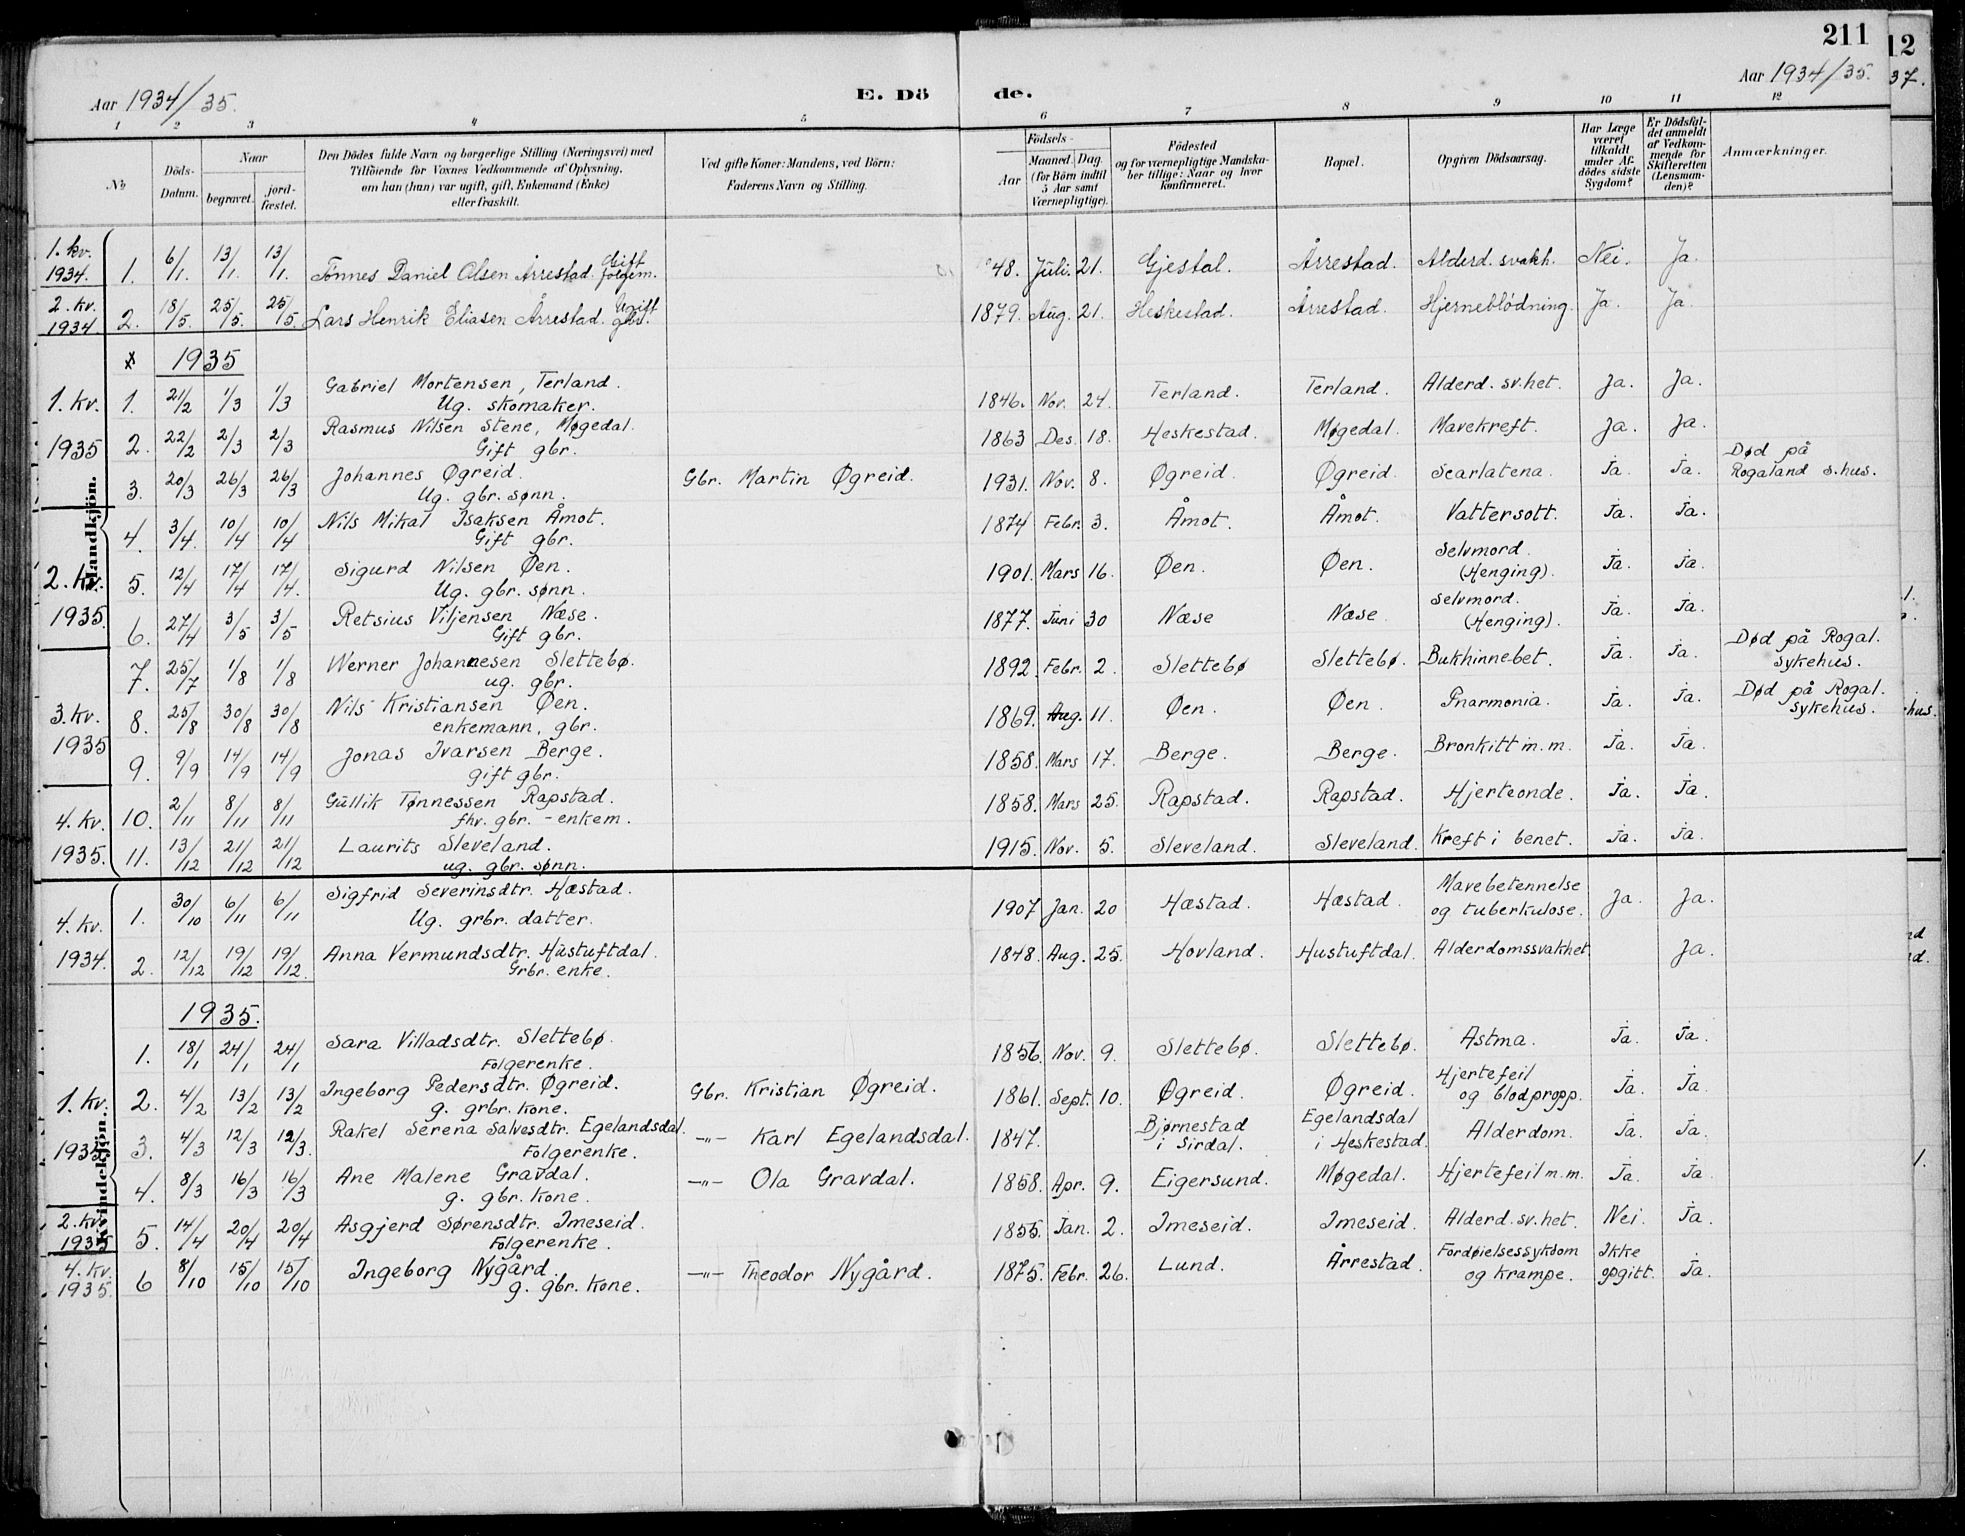 211
12
37.
Aar 1934/35.
E. Dö de.
Aar 1934/35.
1 2 3 4 5 6 7 8 9 10 11 12
No
Döds-Datum.
Naar
begravet.
jord-fæstet.
Den Dödes fulde Navn og borgerlige Stilling (Næringsvei) med
Tilföiende for Voxnes Vedkommende af Oplysning,
om han (hun) var ugift, gift, Enkemand (Enke)
eller fraskilt.
Ved gifte Koner: Mandens, ved Börn:
Faderens Navn og Stilling.
Födsels-
Aar
Maaned. Dag.
(for Börn indtil
5 Aar samt
Værnepligtige).
Födested
og for værnepligtige Mandska-
ber tillige: Naar og hvor
konfirmeret.
Bopæl.
Opgiven Dödsaarsag.
Har Læge
været
tilkaldt
under Af-
dödes sidste
Sygdom?
Er Dödsfal-
det anmeldt
af Vedkom-
mende for
Skifteretten
(Lensman-
den)?
Anmærkninger.
Mandkjön.
1. kv. 1934. 1. 6/1. 13/1. 13/1. Tønnes Daniel Olsen Årrestad. Gift folgem. 48. Juli. 21. Gjestal. Årrestad. Alderd. svakh. Nei. Ja.
2. kv. 1934. 2. 18/5. 25/5. 25/5. Lars Henrik Eliasen Årrestad. Ugift gbr. 1879. Aug. 21. Heskestad. Årrestad. Hjerneblödning. Ja. Ja.
1935
1. kv. 1935 1. 21/2 1/3 1/3 Gabriel Mortensen, Terland. 1846. Nov. 24. Terland. Terland. Alderd. sv.het. Ja. Ja.
Ug. skomaker.
2. 22/2 2/3 2/3 Rasmus Nilsen Stene, Møgedal. 1863 Des. 18. Heskestad. Møgedal. Mavekreft. Ja. Ja.
Gift gbr.
3. 20/3 26/3 26/3 Johannes Øgreid. Gbr. Martin Øgreid. 1931. Nov. 8. Øgreid. Øgreid. Scarlatena. Ja. Ja. Død på
Ug. gbr. sønn. Rogaland s.hus.
2. kv. 1935. 4. 3/4. 10/4 10/4 Nils Mikal Isaksen Åmot. 1874 Febr. 3. Åmot. Åmot. Vattersott. Ja. Ja.
Gift gbr.
5. 12/4 17/4 17/4. Sigurd Nilsen Øen. 1901. Mars 16. Øen. Øen. Selvmord. Ja. Ja.
Ug. gbr. sønn. (Henging).
6. 27/4 3/5 3/5 Retsius Viljensen Næse. 1877. Juni 30 Næse Næse Selvmord. Ja. Ja.
Gift gbr. (Henging).
3. kv. 1935 7. 25/7 1/8 1/8 Werner Johannesen Slettebø. 1892. Febr. 2. Slettebø Slettebø. Bukhinnebet. Ja. Ja. Død på Rogal.
ug. gbr. sykehus.
8. 25/8 30/8 30/8 Nils Kristiansen Øen. 1869. Aug. 11. Øen. Øen. Pnarmonia. Ja. Ja. Død på Rogal.
enkemann, gbr. sykehus.
9. 9/9 14/9 14/9 Jonas Ivarsen Berge. 1858. Mars 17. Berge. Berge. Bronkitt m.m. Ja. Ja.
gift gbr.
4. kv. 1935. 10. 2/11 8/11 8/11 Gullik Tønnessen Rapstad. 1858. Mars 25. Rapstad. Rapstad. Hjerteonde. Ja. Ja.
fhv. gbr. - enkem.
11. 13/12 21/12 21/12 Laurits Sleveland. 1915. Nov. 5. Sleveland. Sleveland. Kreft i benet. Ja. Ja.
ug. gbr. sønn.
Kvindekjön.
4. kv. 1934. 1. 30/10 6/11 6/11 Sigfrid Severinsdtr. Hæstad. 1907 Jan. 20 Hæstad. Hæstad. Mavebetennelse Ja. Ja.
Ug. grbr. datter. og tuberkulose.
2. 12/12 19/12 19/12. Anna Vermundsdtr. Hustuftdal. 1848. Aug. 25. Hovland. Hustuftdal. Alderdomssvakhet Ja.
Grbr. enke.
1935.
1. kv. 1935. 1. 18/1 24/1 24/1 Sara Villadsdtr. Slettebø. 1856. Nov. 9. Slettebø. Slettebø. Astma. Ja. Ja.
Folgerenke.
2. 4/2 13/2 13/2 Ingeborg Pedersdtr. Øgreid. Gbr. Kristian Øgreid. 1861. Sept. 10. Øgreid. Øgreid. Hjertefeil Ja. Ja.
g. grbr. kone. og blodpropp.
3. 4/3 12/3 12/3. Rakel Serena Salvesdtr. Egelandsdal. -"- Karl Egelandsdal. 1847. Bjørnestad Egelandsdal Alderdom. Ja. Ja.
Folgerenke. i Sirdal. i Heskestad.
4. 8/3 16/3 16/3 Ane Malene Gravdal. -"- Ola Gravdal. 1858. Apr. 9. Eigersund. Møgedal. Hjertefeil m.m. Ja. Ja.
g. gbr. kone.
2. kv. 1935 5. 14/4 20/4 20/4 Asgjerd Sørensdtr. Imeseid. 1855. Jan. 2. Imeseid. Imeseid. Alderd. sv.het. Nei. Ja.
Folgerenke.
4. kv. 1935. 6 8/10 15/10 15/10 Ingeborg Nygård. -"- Theodor Nygård. 1875. Febr. 26. Lund. Årrestad. Fordøielsessykdom Ikke Ja.
g. gbr. kone. og krampe. opgitt.